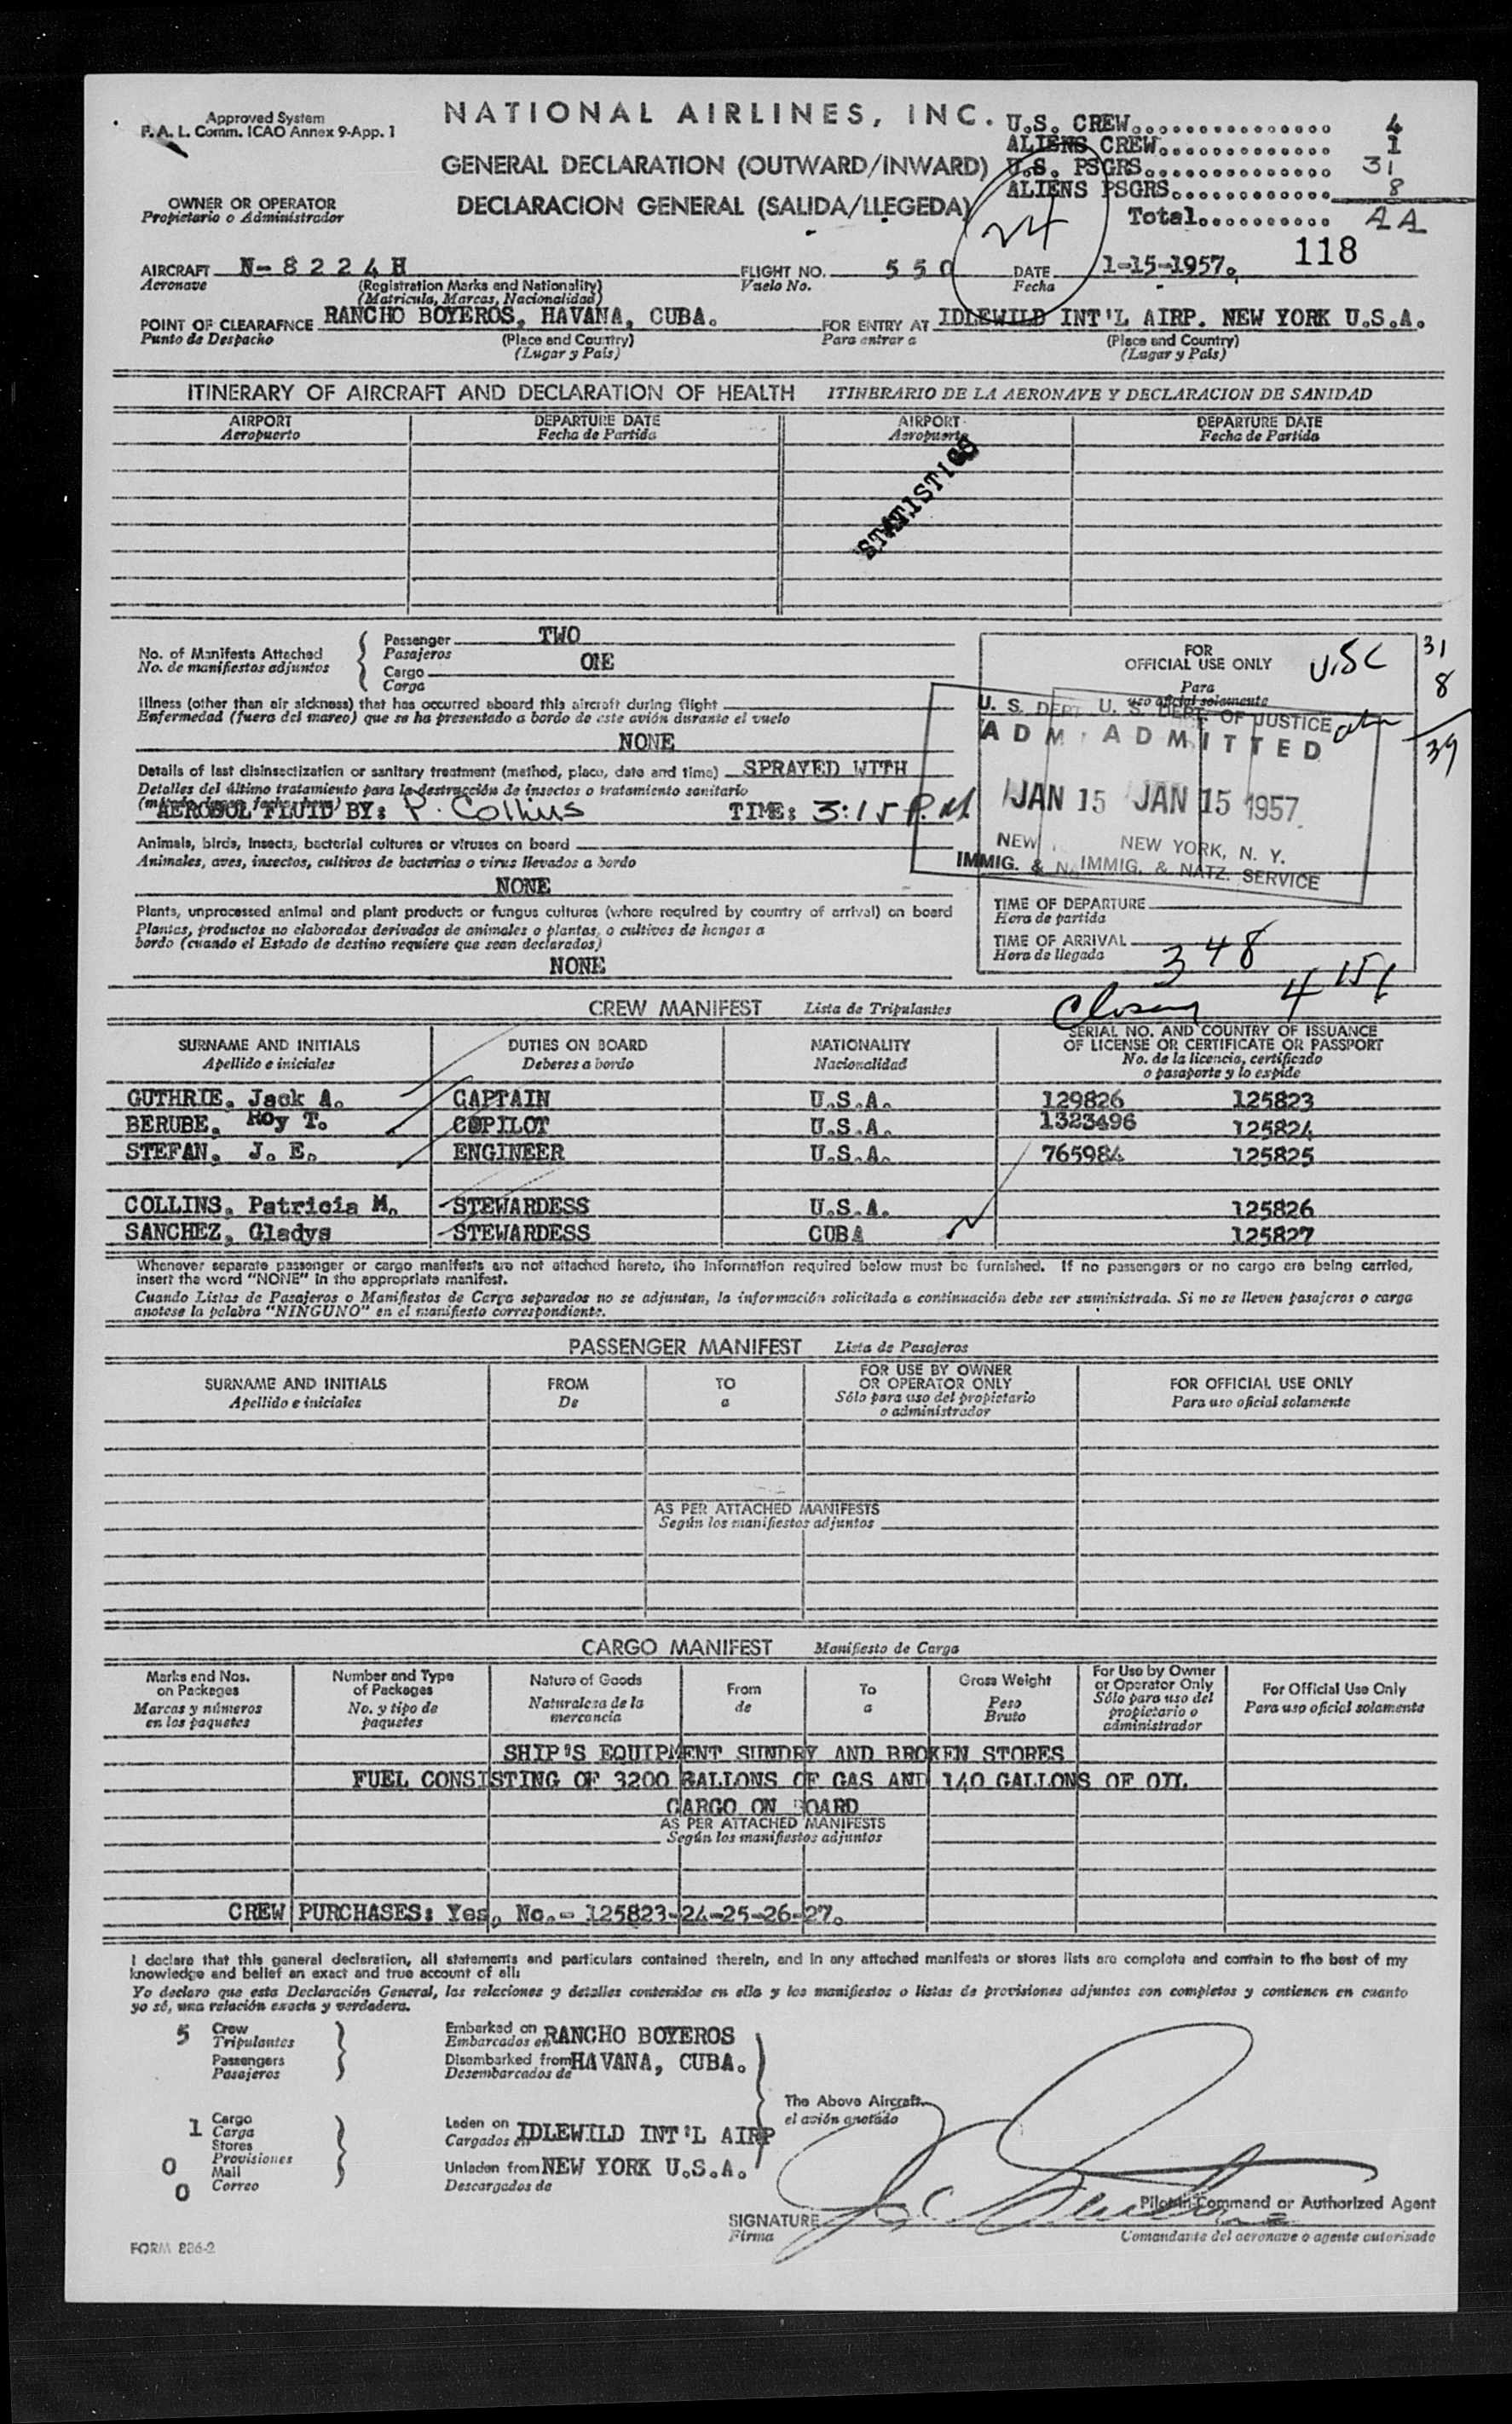 Approved System
F. A. L. Comm. ICAO Annex 9-App. 1
NATIONAL AIRLINES, INC.
U.S. CREW............... 4
ALIENS CREW............. 1
GENERAL DECLARATION (OUTWARD/INWARD)
U.S. PSGRS.............. 31
ALIENS PSGRS............ 8
OWNER OR OPERATOR
Propietario o Administrador
DECLARACION GENERAL (SALIDA/LLEGEDA)
Total.......... 44
24
118
AIRCRAFT N-8224H FLIGHT NO. 550 DATE 1-15-1957.
Aeronave (Registration Marks and Nationality) Vuelo No. Fecha
(Matricula, Marcas, Nacionalidad)
POINT OF CLEARAFNCE RANCHO BOYEROS, HAVANA, CUBA. FOR ENTRY AT IDLEWILD INT'L AIRP. NEW YORK U.S.A.
Punto de Despacho (Place and Country) Para entrar a (Place and Country)
(Lugar y País) (Lugar y País)
ITINERARY OF AIRCRAFT AND DECLARATION OF HEALTH ITINERARIO DE LA AERONAVE Y DECLARACION DE SANIDAD
AIRPORT DEPARTURE DATE AIRPORT DEPARTURE DATE
Aeropuerto Fecha de Partida Aeropuerto Fecha de Partida
STATISTICS
No. of Manifests Attached
No. de manifiestos adjuntos
Passenger TWO
Pasajeros
Cargo ONE
Carga
FOR
OFFICIAL USE ONLY
Para
uso oficial solamente
USC 31
8
39
Illness (other than air sickness) that has occurred aboard this aircraft during flight
Enfermedad (fuera del mareo) que se ha presentado a bordo de este avión durante el vuelo
NONE
U. S. DEPT U. S. DEPT. OF JUSTICE
ADM ADMITTED
JAN 15 JAN 15 1957
NEW NEW YORK, N. Y.
IMMIG. & N IMMIG. & NATZ. SERVICE
Details of last disinsectization or sanitary treatment (method, place, date and time) SPRAYED WITH
Detalles del último tratamiento para la destrucción de insectos o tratamiento sanitario
AEROSOL FLUID BY: P. Collins TIME: 3:15 P.M.
Animals, birds, insects, bacterial cultures or viruses on board
Animales, aves, insectos, cultivos de bacterias o virus llevados a bordo
NONE
Plants, unprocessed animal and plant products or fungus cultures (where required by country of arrival) on board
Plantas, productos no elaborados derivados de animales o plantas, o cultivos de hongos a
bordo (cuando el Estado de destino requiere que sean declarados)
NONE
TIME OF DEPARTURE
Hora de partida
TIME OF ARRIVAL 348
Hora de llegada
CREW MANIFEST Lista de Tripulantes
SURNAME AND INITIALS DUTIES ON BOARD NATIONALITY SERIAL NO. AND COUNTRY OF ISSUANCE
OF LICENSE OR CERTIFICATE OR PASSPORT
Apellido e iniciales Deberes a bordo Nacionalidad No. de la licencia, certificado
o pasaporte y lo expide
GUTHRIE, Jack A. CAPTAIN U.S.A. 129826 125823
BERUBE, Roy T. COPILOT U.S.A. 1323496 125824
STEFAN, J. E. ENGINEER U.S.A. 765984 125825
COLLINS, Patricia M. STEWARDESS U.S.A. 125826
SANCHEZ, Gladys STEWARDESS CUBA 125827
Whenever separate passenger or cargo manifests are not attached hereto, the information required below must be furnished. If no passengers or no cargo are being carried,
insert the word "NONE" in the appropriate manifest.
Cuando Listas de Pasajeros o Manifiestos de Carga separados no se adjuntan, la información solicitada a continuación debe ser suministrada. Si no se lleven pasajeros o carga
anotese la palabra "NINGUNO" en el manifiesto correspondiente.
PASSENGER MANIFEST Lista de Pasajeros
SURNAME AND INITIALS FROM TO FOR USE BY OWNER
OR OPERATOR ONLY FOR OFFICIAL USE ONLY
Apellido e iniciales De a Sólo para uso del propietario
o administrador Para uso oficial solamente
AS PER ATTACHED MANIFESTS
Según los manifiestos adjuntos
CARGO MANIFEST Manifiesto de Carga
Marks and Nos.
on Packages
Marcas y números
en los paquetes
Number and Type
of Packages
No. y tipo de
paquetes
Nature of Goods
Naturalesa de la
mercancia
From
de
To
a
Gross Weight
Peso
Bruto
For Use by Owner
or Operator Only
Sólo para uso del
propietario o
administrador
For Official Use Only
Para uso oficial solamente
SHIP'S EQUIPMENT SUNDRY AND BROKEN STORES
FUEL CONSISTING OF 3200 GALLONS OF GAS AND 140 GALLONS OF OIL
CARGO ON BOARD
AS PER ATTACHED MANIFESTS
Según los manifiestos adjuntos
CREW PURCHASES: Yes, No.- 125823-24-25-26-27.
I declare that this general declaration, all statements and particulars contained therein, and in any attached manifests or stores lists are complete and contain to the best of my
knowledge and belief an exact and true account of all:
Yo declaro que esta Declaración General, las relaciones y detalles contenidos en ella y los manifiestos o listas de provisiones adjuntos son completos y contienen en cuanto
yo sé, una relación exacta y verdadera.
5 Crew
Tripulantes
Passengers
Pasajeros
Embarked on RANCHO BOYEROS
Embarcados en
Disembarked from HAVANA, CUBA.
Desembarcados de
The Above Aircraft
el avión anotado
1 Cargo
Carga
Stores
0 Provisiones
Mail
0 Correo
Laden on IDLEWILD INT'L AIRP
Cargados en
Unladen from NEW YORK U.S.A.
Descargados de
Pilot in Command or Authorized Agent
SIGNATURE
Firma
Comandante del aeronave o agente autorisado
FORM 886-2